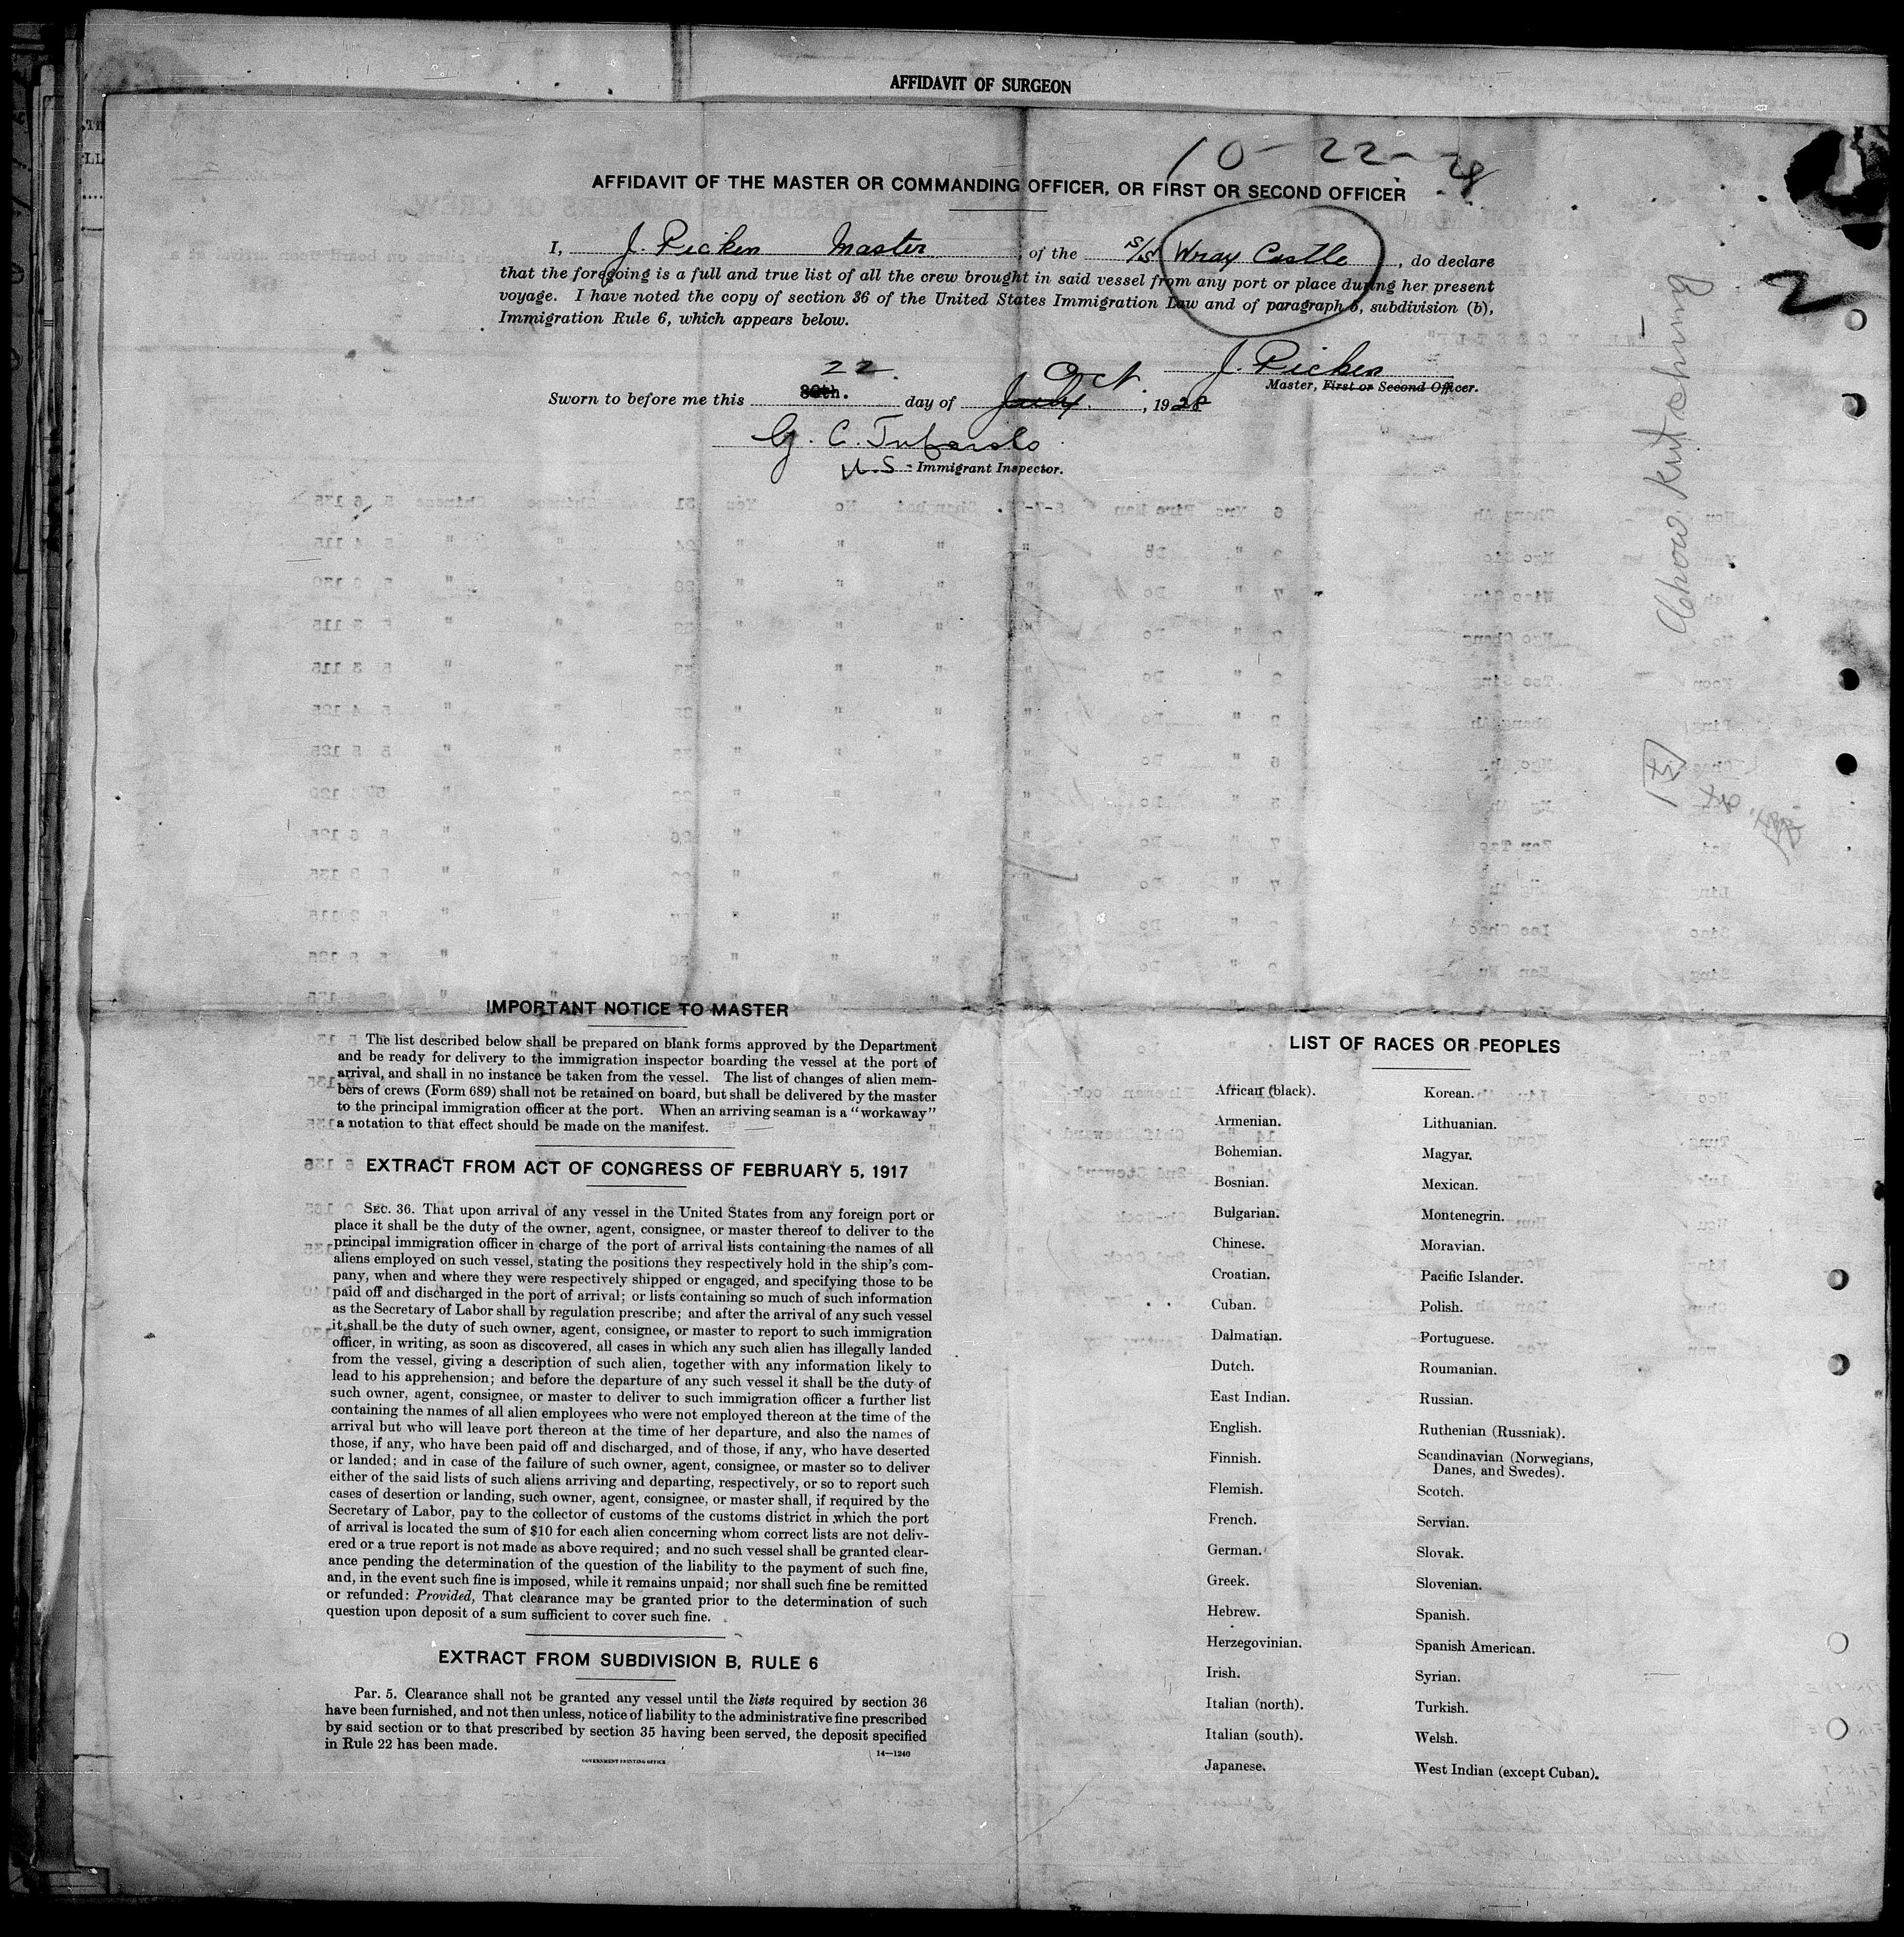 AFFIDAVIT OF SURGEON
10-22-28
AFFIDAVIT OF THE MASTER OR COMMANDING OFFICER, OR FIRST OR SECOND OFFICER
I, J. Picken Master, of the S/S Wray Castle, do declare
that the foregoing is a full and true list of all the crew brought in said vessel from any port or place during her present
voyage. I have noted the copy of section 36 of the United States Immigration Law and of paragraph 5, subdivision (b),
Immigration Rule 6, which appears below.
J. Picken
Master, First or Second Officer.
22.
Sworn to before me this 30th. day of July. Oct., 1928
U.S. Immigrant Inspector.
2
IMPORTANT NOTICE TO MASTER
The list described below shall be prepared on blank forms approved by the Department
and be ready for delivery to the immigration inspector boarding the vessel at the port of
arrival, and shall in no instance be taken from the vessel. The list of changes of alien mem-
bers of crews (Form 689) shall not be retained on board, but shall be delivered by the master
to the principal immigration officer at the port. When an arriving seaman is a "workaway"
a notation to that effect should be made on the manifest.
EXTRACT FROM ACT OF CONGRESS OF FEBRUARY 5, 1917
SEC. 36. That upon arrival of any vessel in the United States from any foreign port or
place it shall be the duty of the owner, agent, consignee, or master thereof to deliver to the
principal immigration officer in charge of the port of arrival lists containing the names of all
aliens employed on such vessel, stating the positions they respectively hold in the ship's com-
pany, when and where they were respectively shipped or engaged, and specifying those to be
paid off and discharged in the port of arrival; or lists containing so much of such information
as the Secretary of Labor shall by regulation prescribe; and after the arrival of any such vessel
it shall be the duty of such owner, agent, consignee, or master to report to such immigration
officer, in writing, as soon as discovered, all cases in which any such alien has illegally landed
from the vessel, giving a description of such alien, together with any information likely to
lead to his apprehension; and before the departure of any such vessel it shall be the duty of
such owner, agent, consignee, or master to deliver to such immigration officer a further list
containing the names of all alien employees who were not employed thereon at the time of the
arrival but who will leave port thereon at the time of her departure, and also the names of
those, if any, who have been paid off and discharged, and of those, if any, who have deserted
or landed; and in case of the failure of such owner, agent, consignee, or master so to deliver
either of the said lists of such aliens arriving and departing, respectively, or so to report such
cases of desertion or landing, such owner, agent, consignee, or master shall, if required by the
Secretary of Labor, pay to the collector of customs of the customs district in which the port
of arrival is located the sum of $10 for each alien concerning whom correct lists are not deliv-
ered or a true report is not made as above required; and no such vessel shall be granted clear-
ance pending the determination of the question of the liability to the payment of such fine,
and, in the event such fine is imposed, while it remains unpaid; nor shall such fine be remitted
or refunded: Provided, That clearance may be granted prior to the determination of such
question upon deposit of a sum sufficient to cover such fine.
EXTRACT FROM SUBDIVISION B, RULE 6
Par. 5. Clearance shall not be granted any vessel until the lists required by section 36
have been furnished, and not then unless, notice of liability to the administrative fine prescribed
by said section or to that prescribed by section 35 having been served, the deposit specified
in Rule 22 has been made.
GOVERNMENT PRINTING OFFICE
14—1240
LIST OF RACES OR PEOPLES
African (black).
Armenian.
Bohemian.
Bosnian.
Bulgarian.
Chinese.
Croatian.
Cuban.
Dalmatian.
Dutch.
East Indian.
English.
Finnish.
Flemish.
French.
German.
Greek.
Hebrew.
Herzegovinian.
Irish.
Italian (north).
Italian (south).
Japanese.
Korean.
Lithuanian.
Magyar.
Mexican.
Montenegrin.
Moravian.
Pacific Islander.
Polish.
Portuguese.
Roumanian.
Russian.
Ruthenian (Russniak).
Scandinavian (Norwegians,
Danes, and Swedes).
Scotch.
Servian.
Slovak.
Slovenian.
Spanish.
Spanish American.
Syrian.
Turkish.
Welsh.
West Indian (except Cuban).